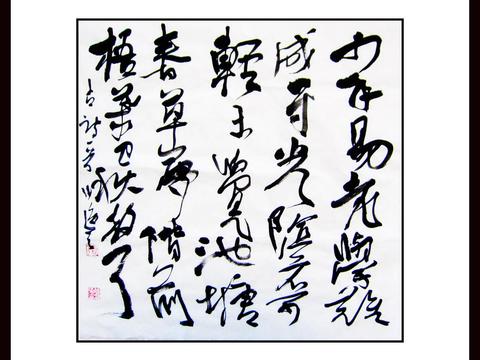 少年易老學難
成一寸光陰不可
輕未覺池塘
春草夢階前
梧葉已秋聲
古詩一首